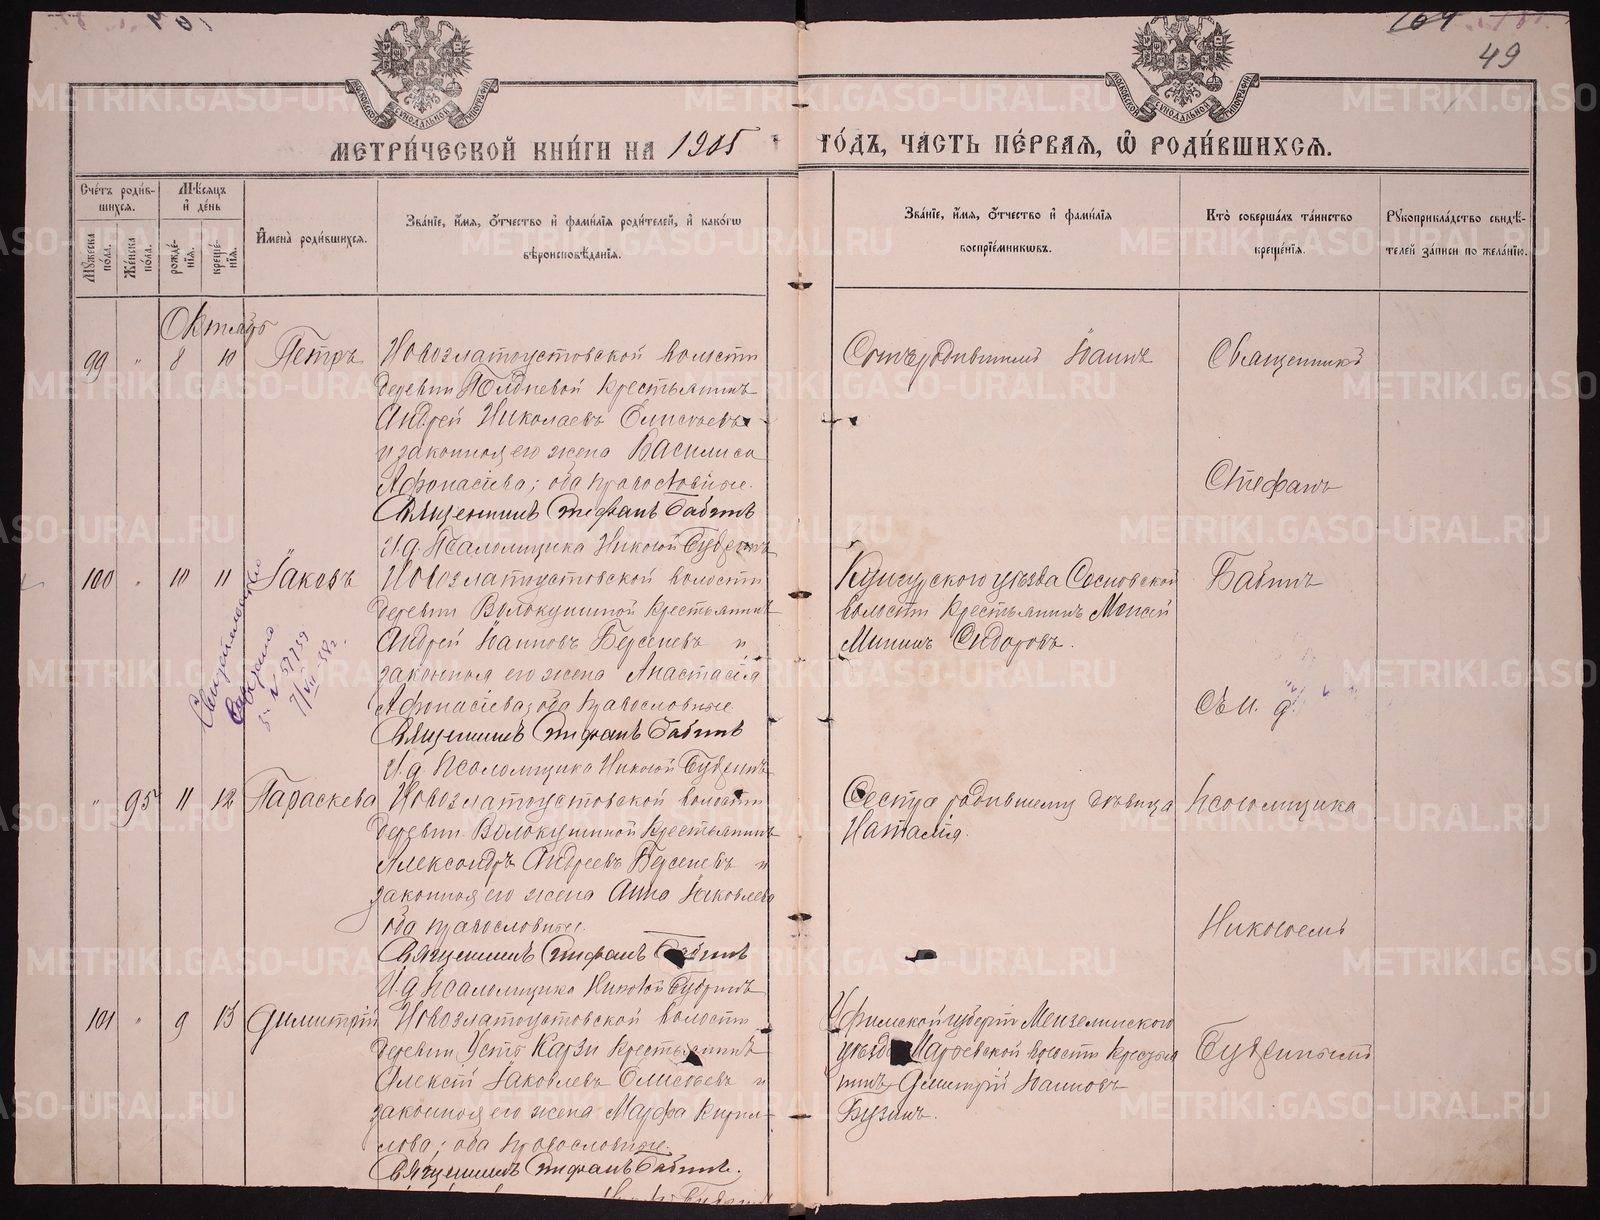 49
МЕТРИ́ЧЕСКОЙ КНИ́ГИ НА 1905
ГО́ДЪ, ЧА́СТЬ ПЕ́РВАѦ, Ѡ҆ РОДИ́ВШИХСѦ.
Сче́тъ роди́в-
шихся.
Мѣ́сяцъ
и҆ де́нь
Мꙋ́жеска
по́ла.
Же́нска
по́ла.
рожде́-
нїѧ.
креще́-
нїѧ.
И҆мена̀ роди́вшихся.
Зва́нїе, и҆́мѧ, ѻ҆́тчество и҆ фами́лїѧ роди́телей, и҆ како́гѡ
вѣроисповѣ́данїѧ.
Зва́нїе, и҆́мѧ, ѻ҆́тчество и҆ фами́лїѧ
воспрїе́мникѡвъ.
Кто̀ соверша́лъ та́инство
креще́нїѧ.
Рꙋкоприкла́дство свидѣ́-
телей за́писи по жела́нїю.
Октябрь
99 " 8 10 Петръ
Новозлатоустовской волости
деревни Полдневой крестьянинъ
Андрей Николаевъ Елисѣевъ
и законная его жена Василиса
Афонасіева; оба православные.
Священникъ Стефанъ Бабинъ
И. д. Псаломщика Николай Будринъ
Священникъ
Стефанъ
100 " 10 11 Іаковъ
Новозлатоустовской волости
деревни Волокушиной крестьянинъ
Андрей Іаиновъ Берсеневъ и
законная его жена Анастасія
Афонасіева; оба православные
Священникъ Стефанъ Бабинъ
И. д. Псаломщика Николай Будринъ
Кунгурского уѣзда Сосновской
волости крестьянинъ Моисей
Мининъ Сидоровъ.
Бабинъ
Съ И. д.
" 95 11 12 Параскева
Новозлатоустовской волости
деревни Волокушиной крестьянинъ
Александръ Андреевъ Берсеневъ и
законная его жена Анна Іаковлева
оба православные.
Священникъ Стефанъ Бабинъ
И. д. Псаломщика Николай Будринъ
Сестра родившему дѣвица
Наталія.
Псаломщика
Николаемъ
101 " 9 13 Димитрій
Новозлатоустовской волости
деревни Усть Карзи крестьянинъ
Алексѣй Іаковлевъ Елисѣевъ и
законная его жена Марфа Кирил-
лова; оба православные.
Священникъ Стефанъ Бабинъ.
Уфимской губерніи Мензелинского
волости крестья
нинъ Димитрій Іаиновъ
Бузинъ.
Будринымъ
Свидѣтельство
METRIKI.GASO-URAL.RU